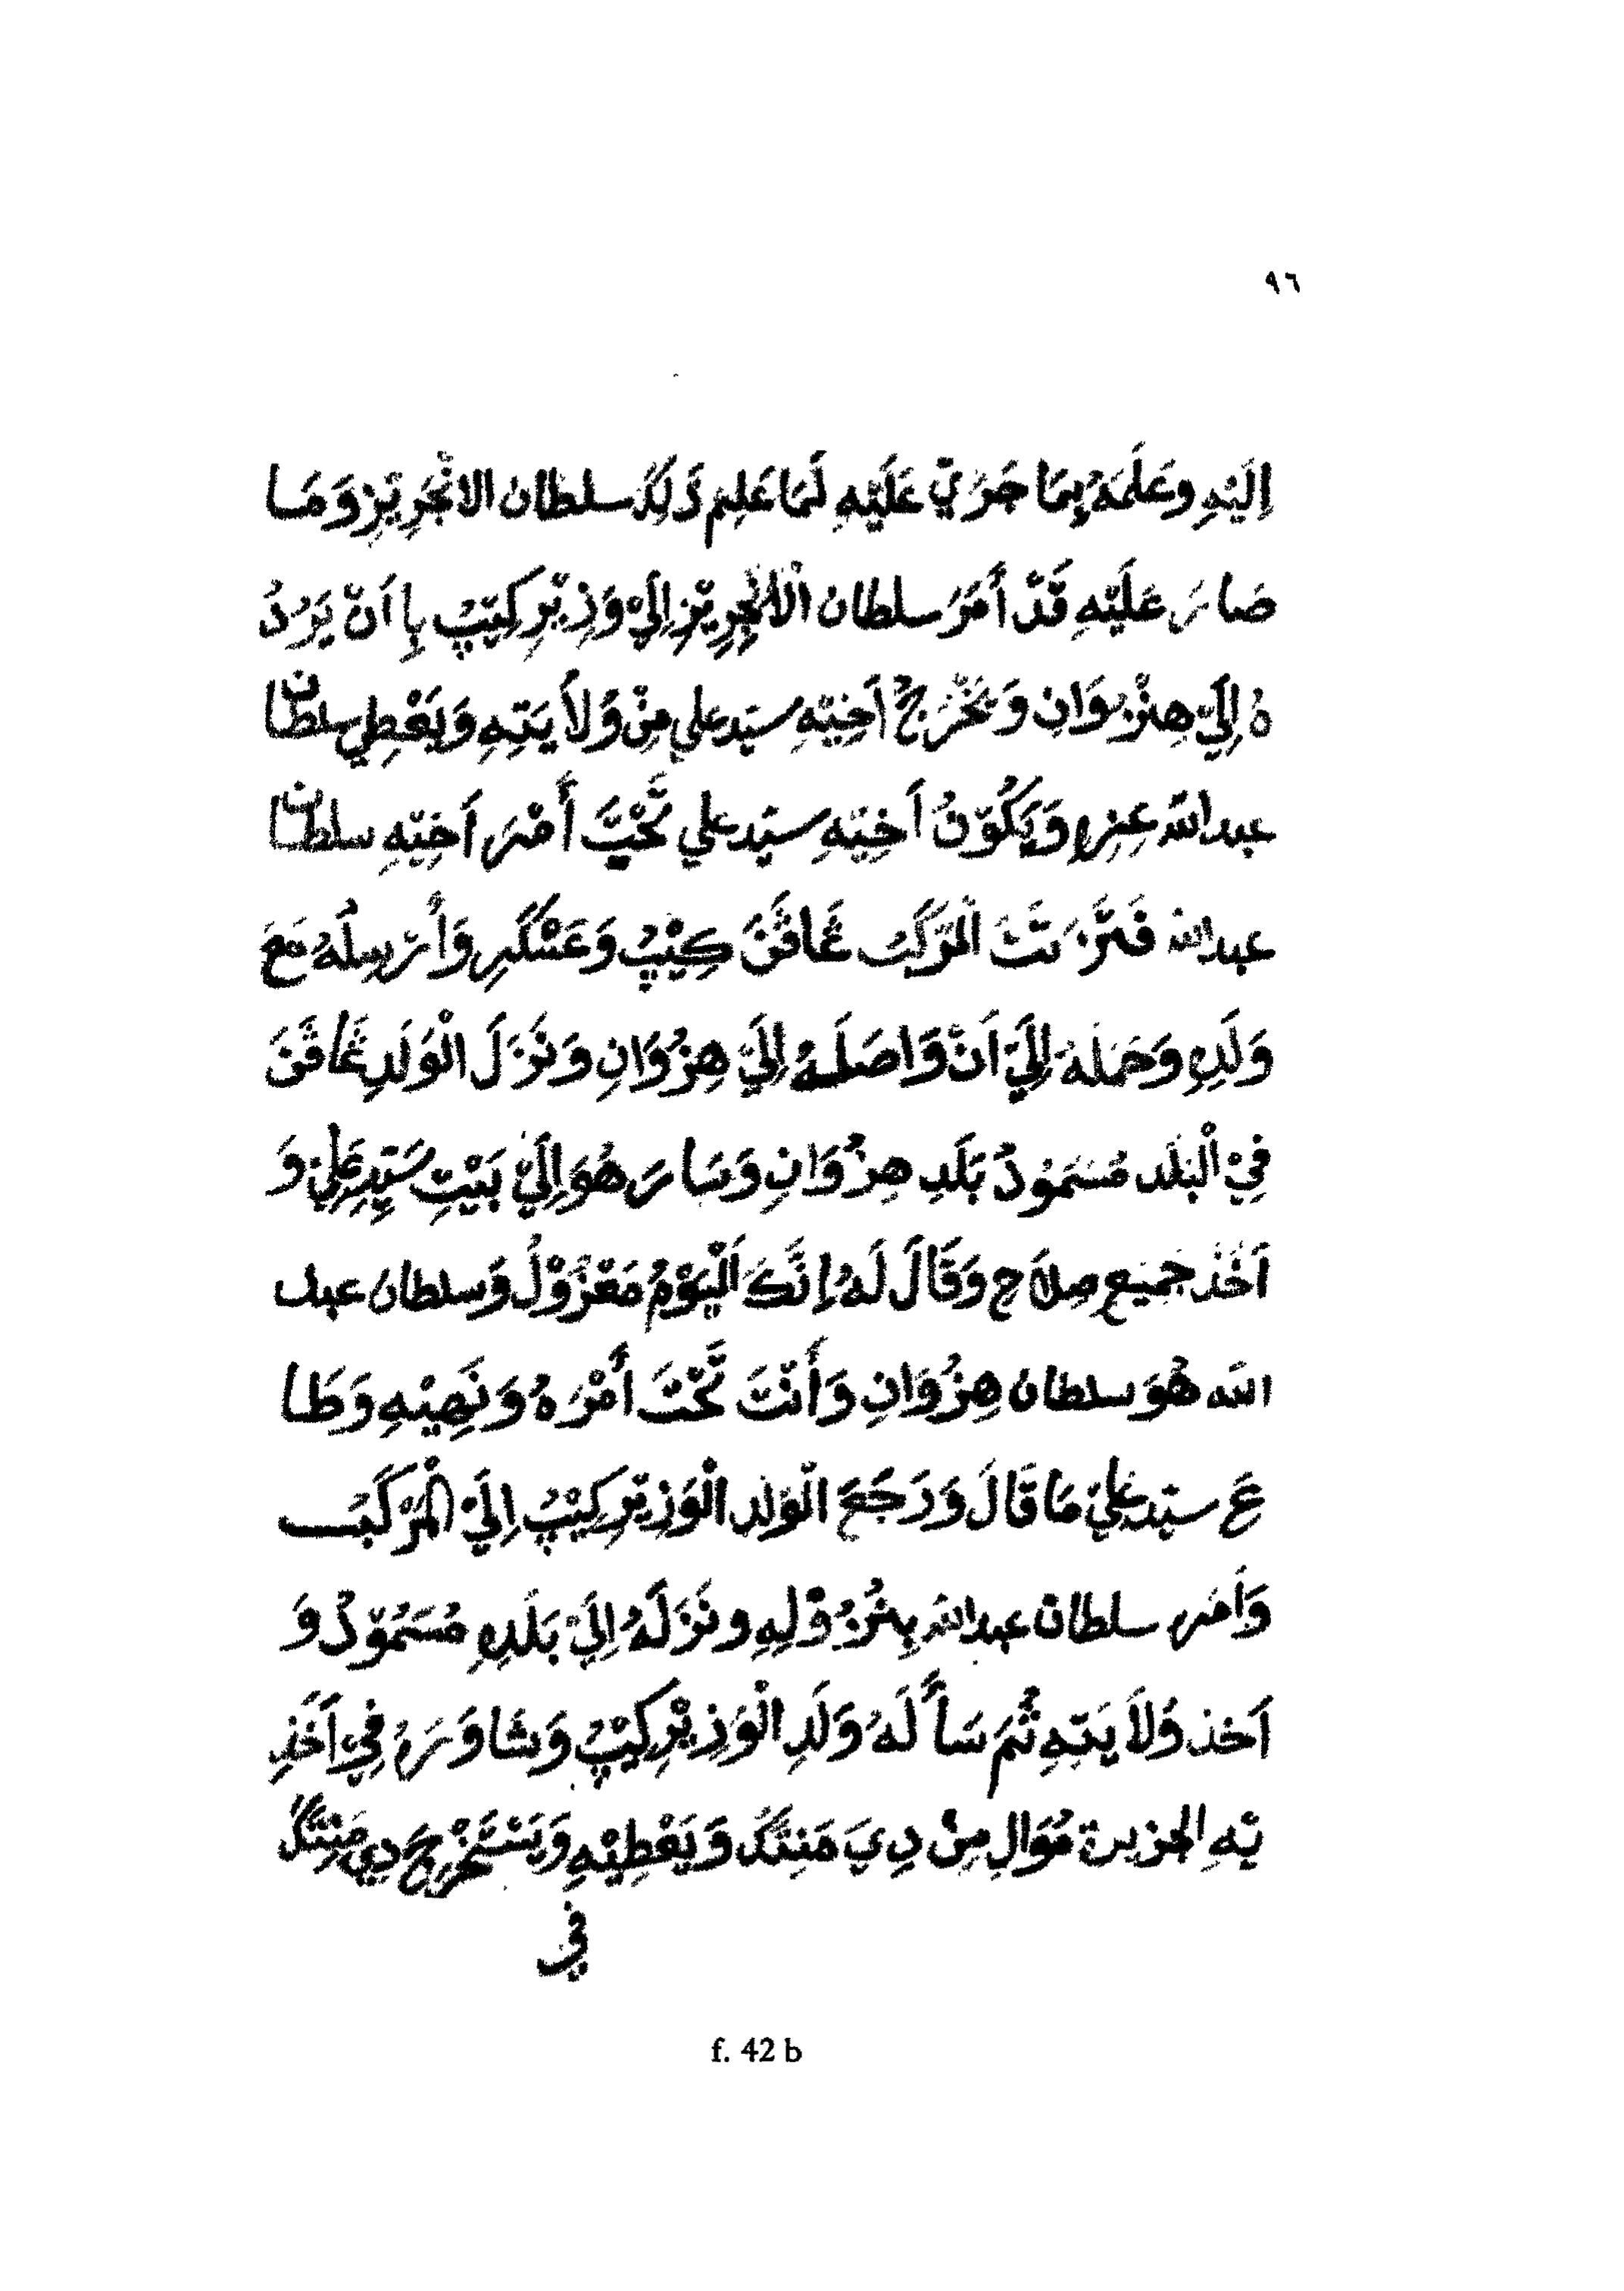 ٩٦
اِلَيْهِ وعَلَمَهُ بِمَا جَرَيّ عَلَيْهِ لَمَا عَلِم ذَلِكَ سلطان الانْجَرِيَزِ وَمَا
صَارَ عَلَيْهِ قَدّ أَمَرَ سلطان الْانْجِرِيْزِ اِلَيْ وَزِيْرِ كِيَتٍ بِا اَنّ يَرُدُ
هُ اِلَيّ هِنْزُوَانِ وَيَخْرُجُ اَخِيْهِ سيّد علي مِنْ وَلاَ يَتِهِ وَيَعْطِي سلطان
عبد الله عِزِهِ وَيَكُوّنُ اَخِيْهِ سيّد علي تَحْتَ أَمْرَ اَخِيْهِ سلطان
عبد الله فَتَّرَتَّ الْمَرّكَبُ غَافَّنَ كِيْپُ وَعَسْكَرِ وَأَرْسِلُهُ مَعَ
وَلَدِهِ وَحَمَلَهُ اِلَيّ اَنّ وَاصَلَهُ اِلَيّ هِزُوَانِ وَنَزَلَ الْوَلَدِ غَافَّنَ
فِيْ الْبَلَد مُسَمُوْدُ بَلَدِ هِزُوَانِ وَسَارَ هُوَ اِلَيْ بَيْتِ سَيّدِ عَلِيْ وَ
اَخَذ جَمِيْع صِلاَح وَقَالَ لَهُ اِنَّكَ اَلْيَوْمُ مَعْزُوْلُ وَسلطان عبد
الله هُوَ سلطان هِزُوَانِ وَأَنْتَ تَّحْتَ اُمْرَهُ وَنَهِيْهِ وَطَا
عَ سيّد عليْ مَا قَالَ وَرَجَعَ الْوَلِد الْوَزِيّرِ كِيْپُ اِلَيْ الْمَرْكَبْ
وَاَمَره سلطان عبد الله بِنُزُوْلِهِ وَنَزَلَهُ اِلَيْ بَلَدِهِ مُسَمُوّدُ وَ
اَخذ وَلاَ يَتِهِ ثُمَ سَأَ لَهُ وَلَدِ الْوَزِيْرِ كِيْپُ وَشَاوَرَهُ فِيْ اَخَذِ
يَهِ الجزيرة مُوَالِ مِنْ دِيَ مَنِتَكَ وَيَعْطِيْهِ وَيَسْتَخْرِجَ دِي مَنِتَكَ
في
f. 42 b